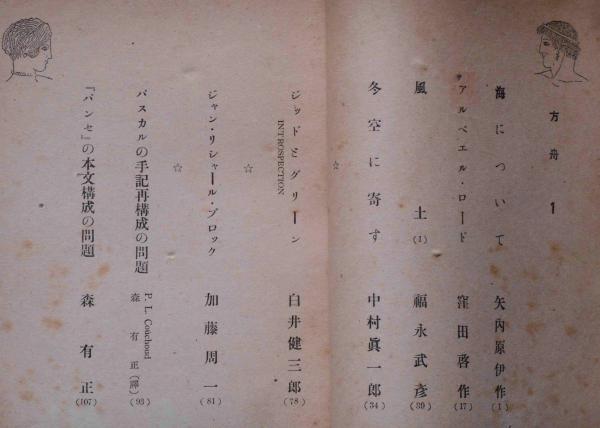 方舟 1
海について 矢内原伊作 (1)
アルベエル・ロード 窪田啓作 (17)
風土 (1) 福永武彦 (39)
冬空に寄す 中村眞一郎 (34)
☆
ジッドとグリーン 白井健三郎 (78)
INTROSPECTION
☆
ジャン・リシャール・ブロック 加藤周一 (81)
☆
パスカルの手記再構成の問題 P. L. Couchoud
森有正(譯) (93)
『パンセ』の本文構成の問題 森有正 (107)